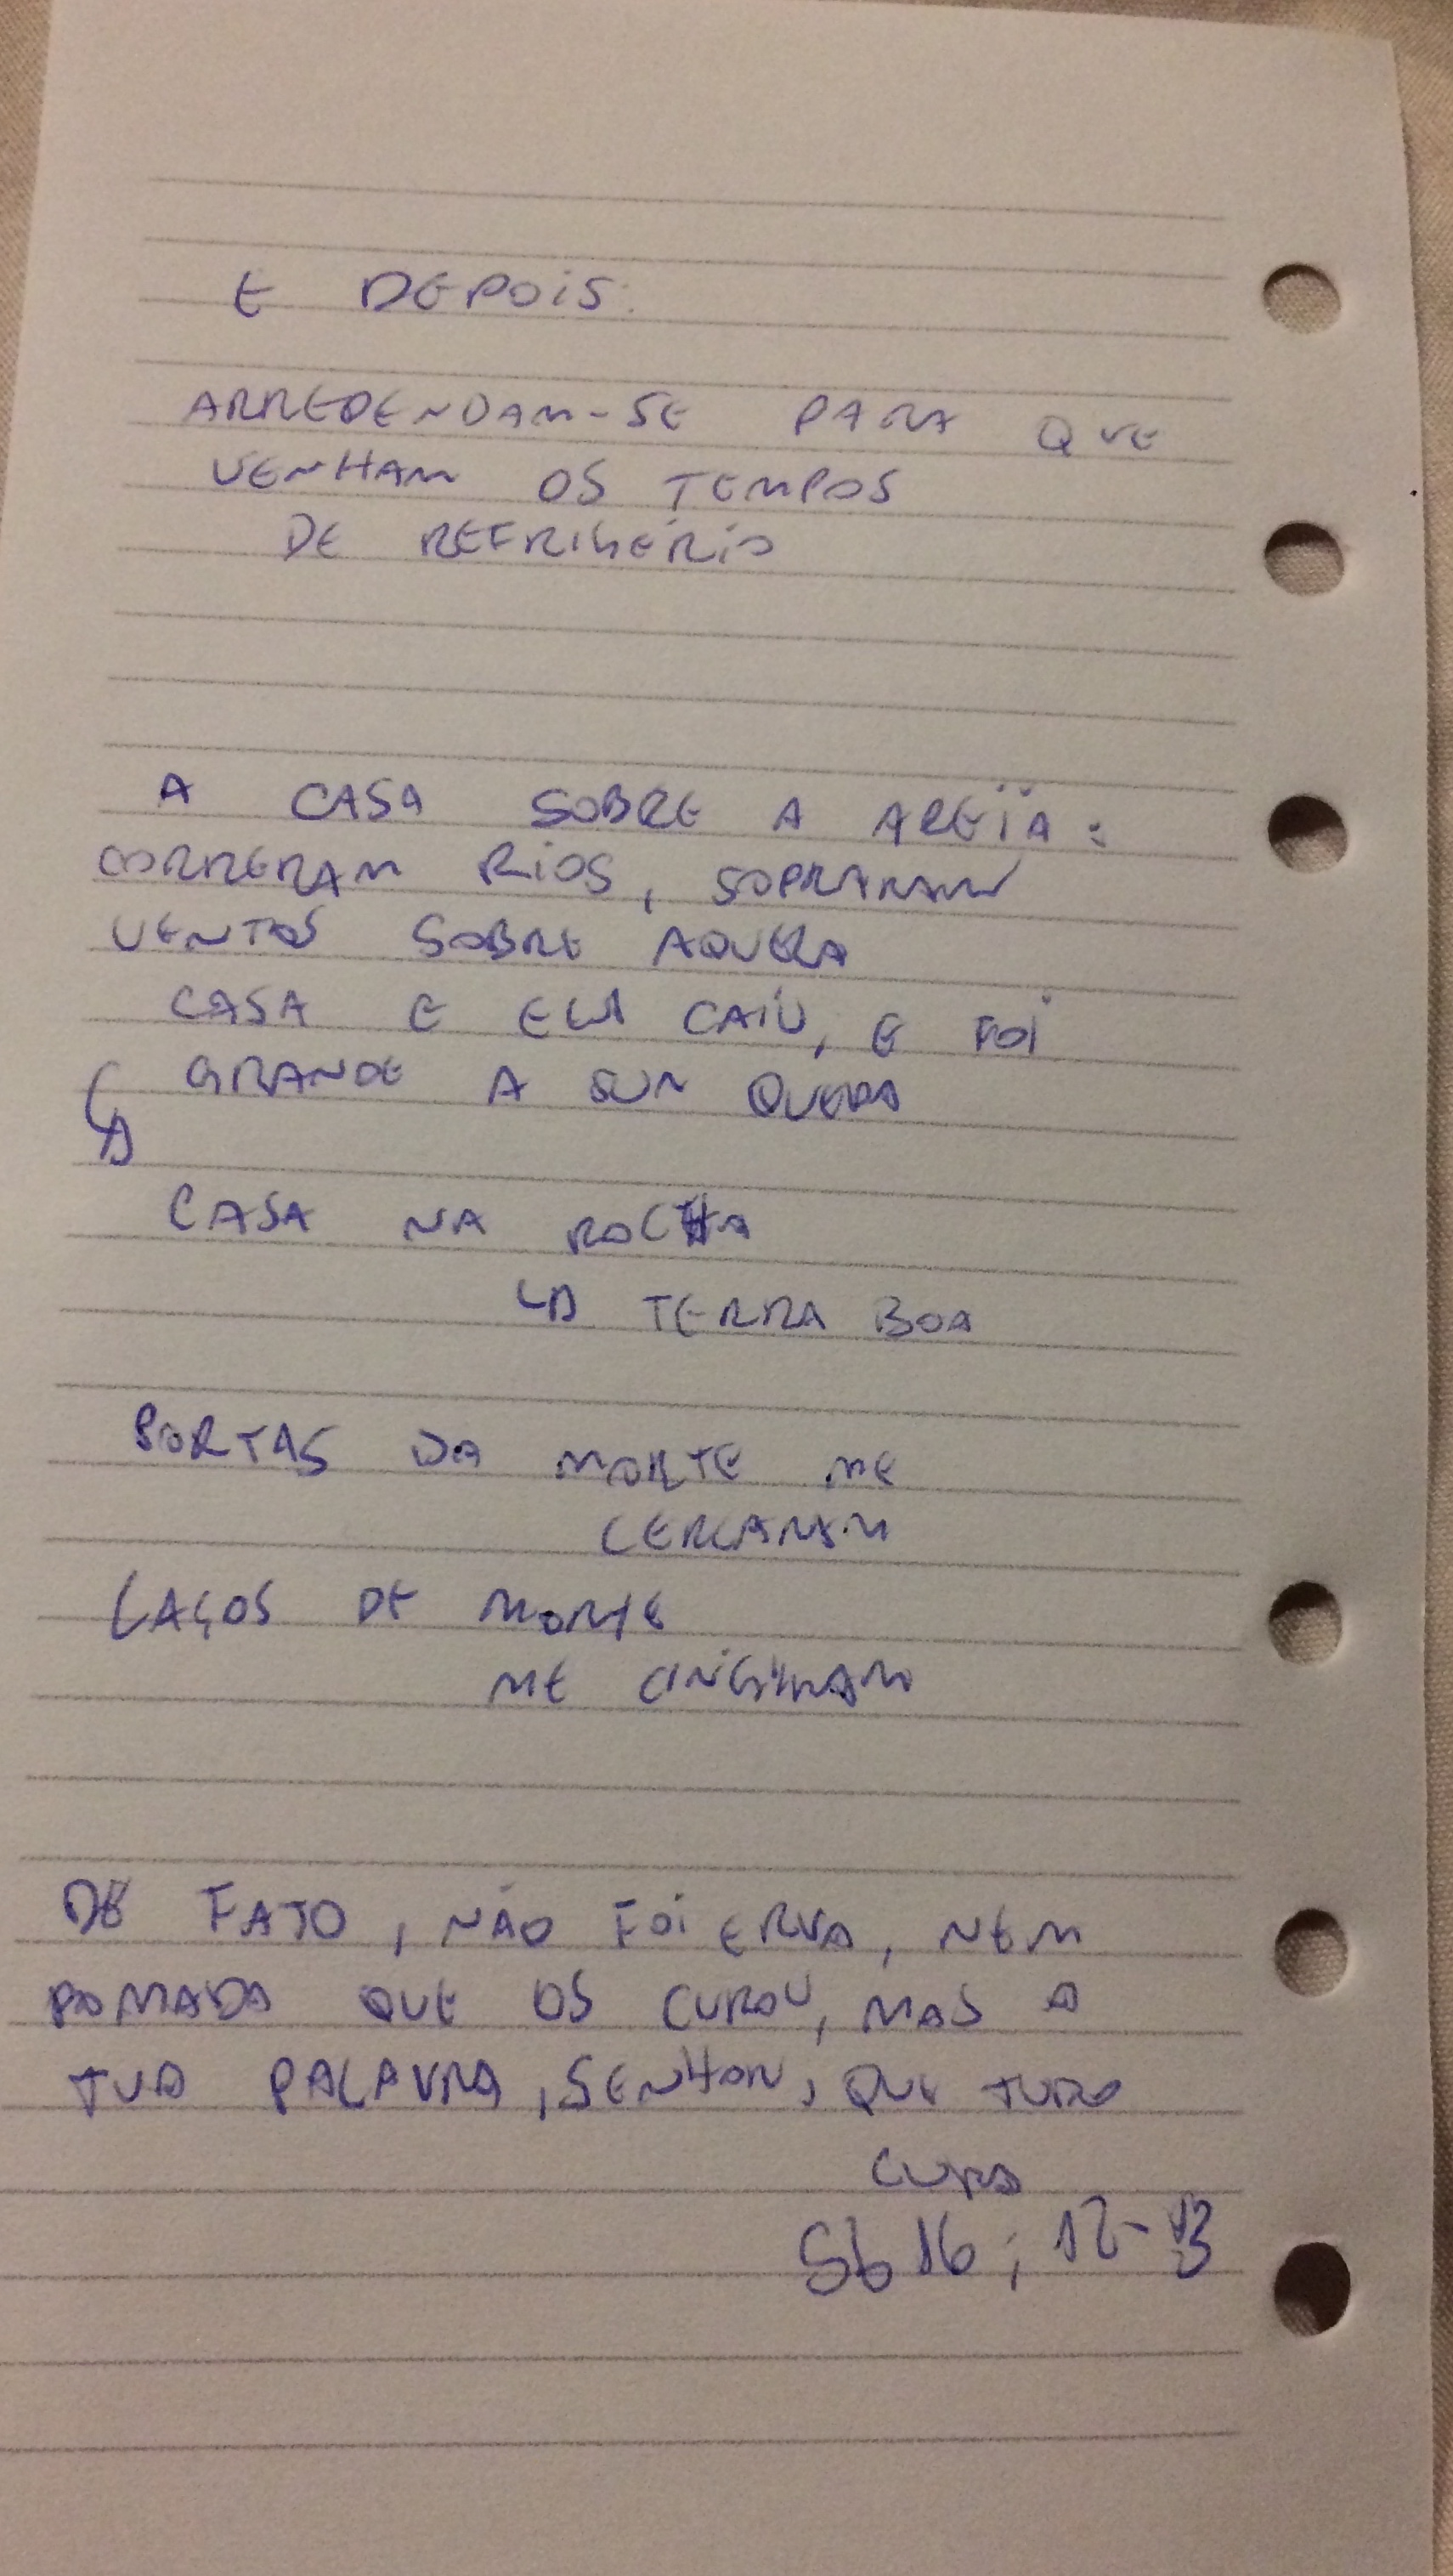 E DEPOIS:
ARREPENDAM-SE PARA QUE
VENHAM OS TEMPOS
DE REFRIGÉRIO
A CASA SOBRE A AREIA:
CORRERAM RIOS, SOPRARAM
VENTOS SOBRE AQUELA
CASA E ELA CAIU, E FOI
GRANDE A SUA QUEDA
CASA NA ROCHA
TERRA BOA
PORTAS DA MORTE ME
CERCARAM
LAÇOS DE MORTE
ME CINGIRAM
DE FATO, NÃO FOI ERVA, NEM
POMADA QUE OS CUROU, MAS A
TUA PALAVRA, SENHOR, QUE TUDO
CURA
Sb 16; 12-13